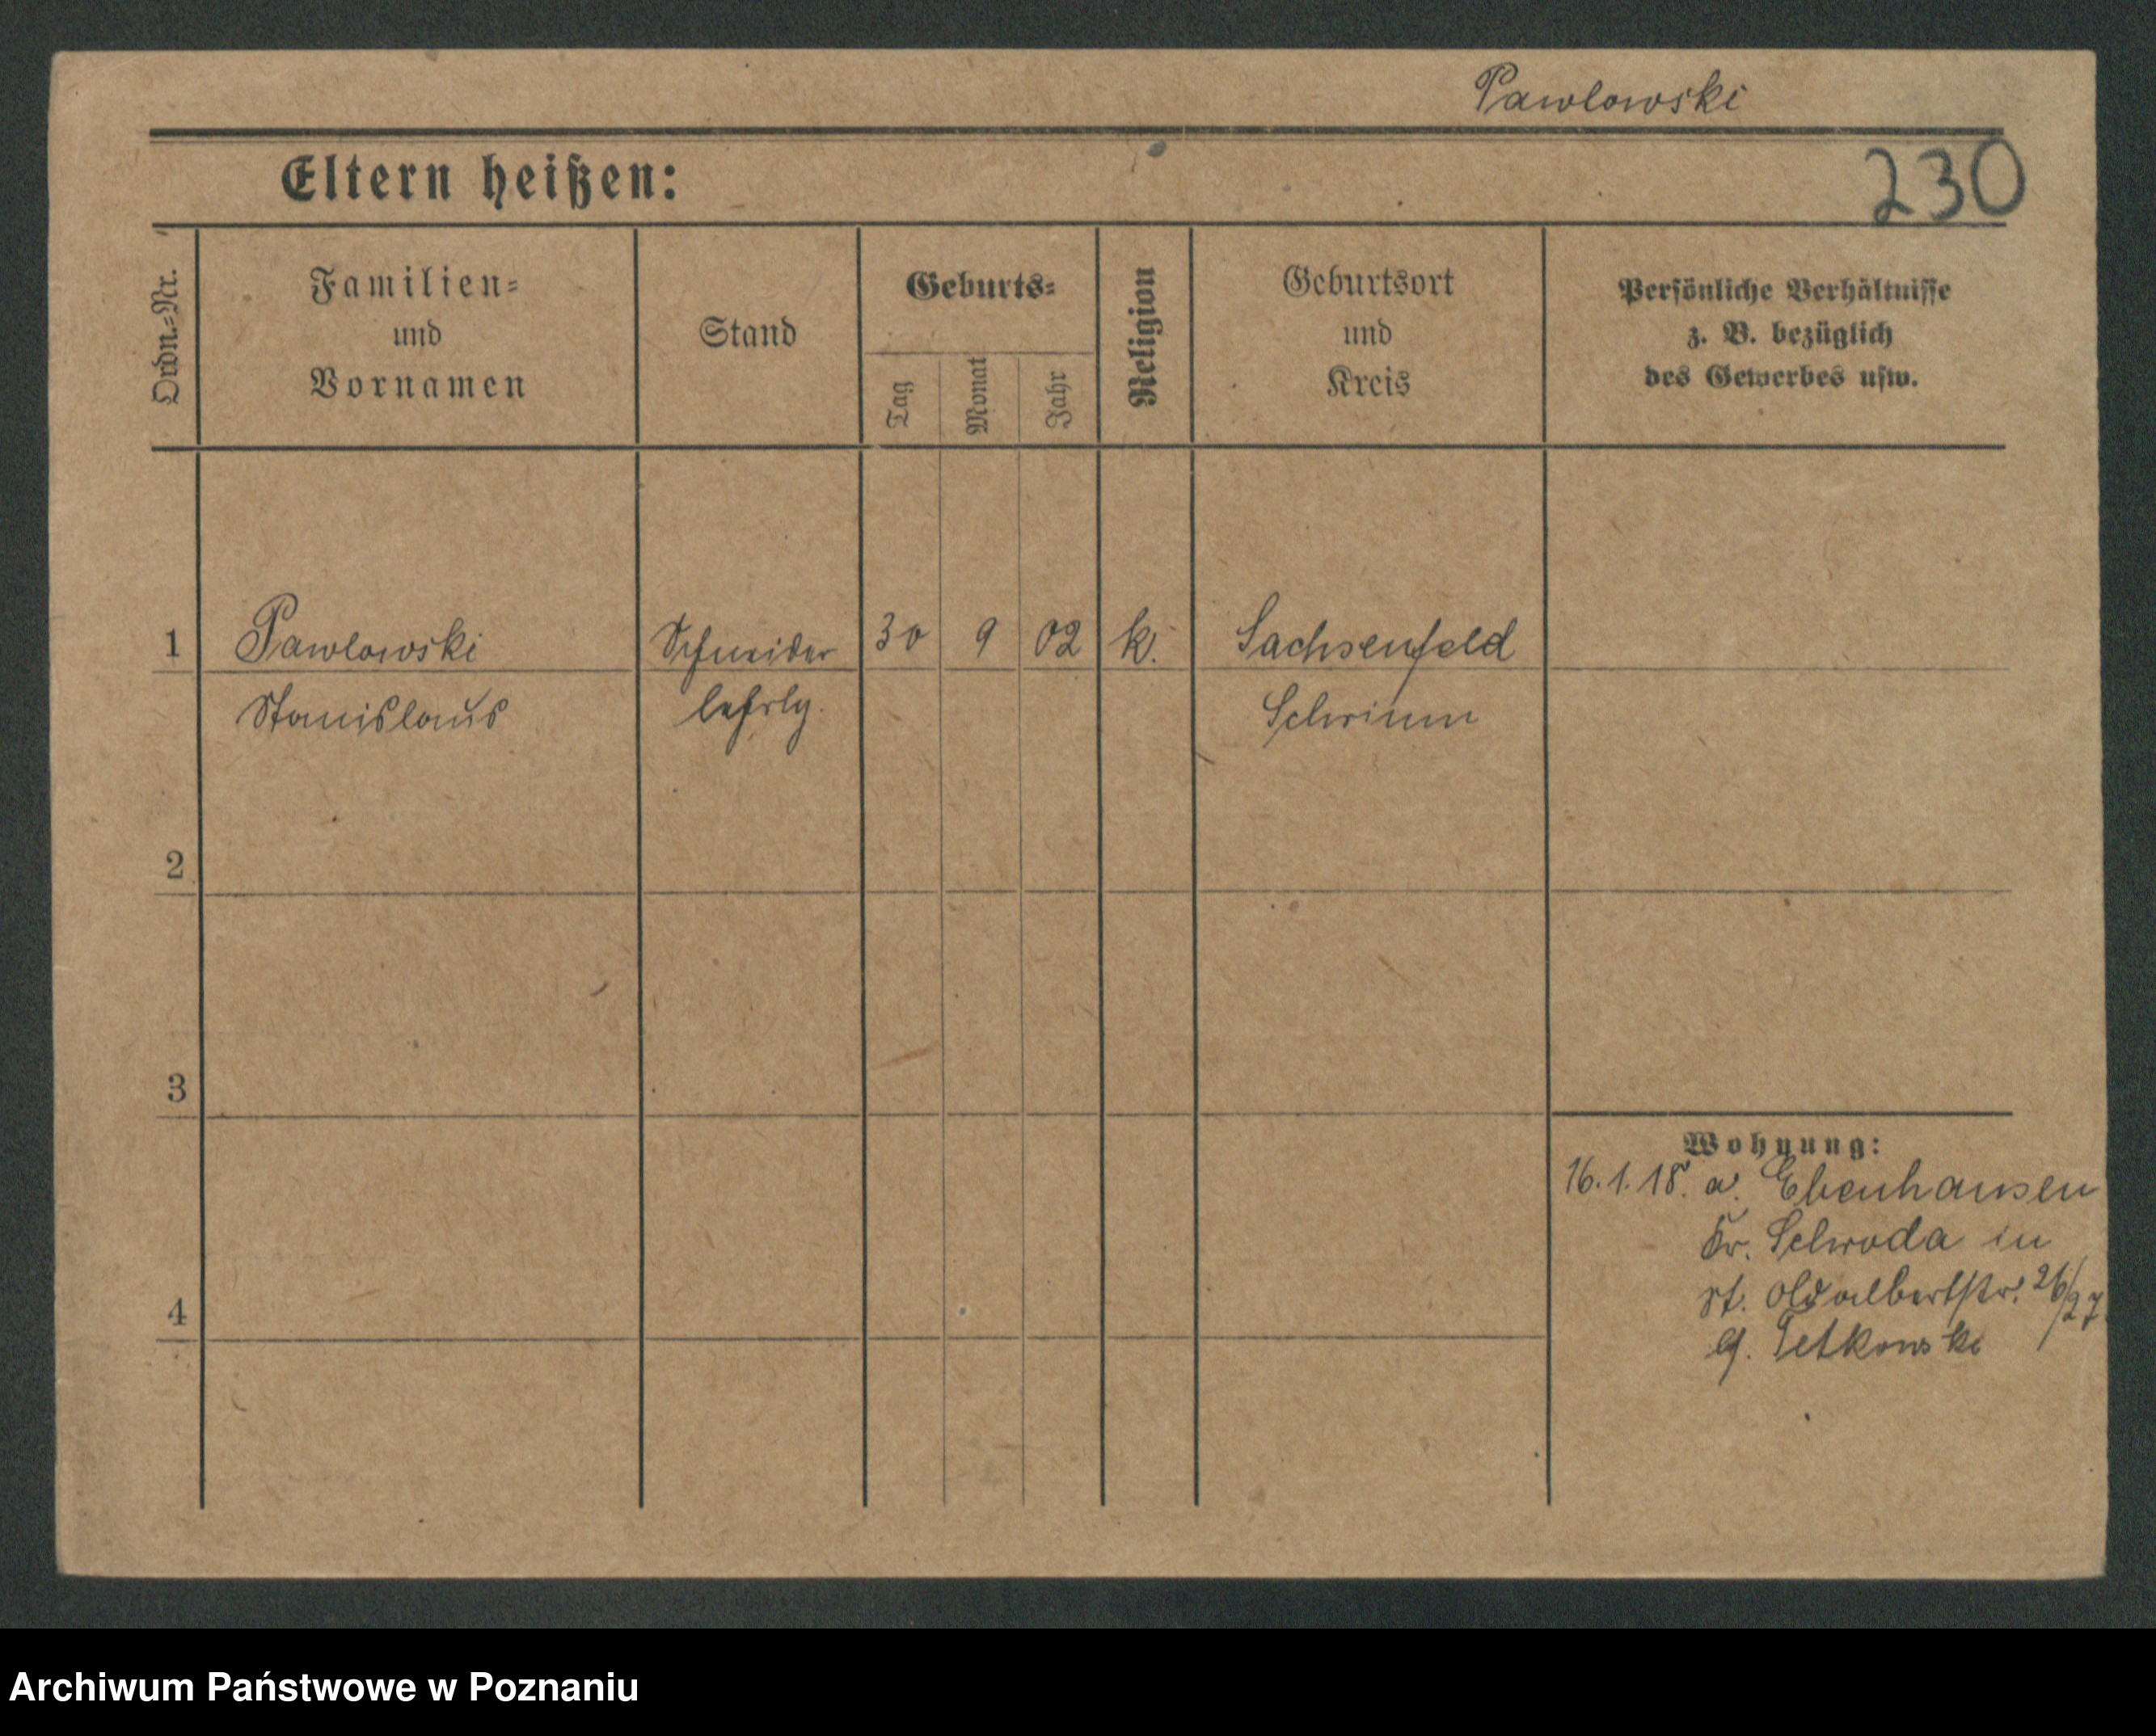 Pawlowski
Eltern heißen:
230
Ordn.-Nr.
Familien-
und
Vornamen
Stand
Geburts-
Tag
Monat
Jahr
Religion
Geburtsort
und
Kreis
Persönliche Verhältnisse
z. B. bezüglich
des Gewerbes usw.
1 Pawlowski Schneider 30 9 02 k. Sachsenfeld
Stanislaus lehrlg. Schrimm
2
3
Wohnung:
16.1.18. a. Ebenhausen
Kr. Schroda in
st. albertstr. 26/27
4
Archiwum Państwowe w Poznaniu